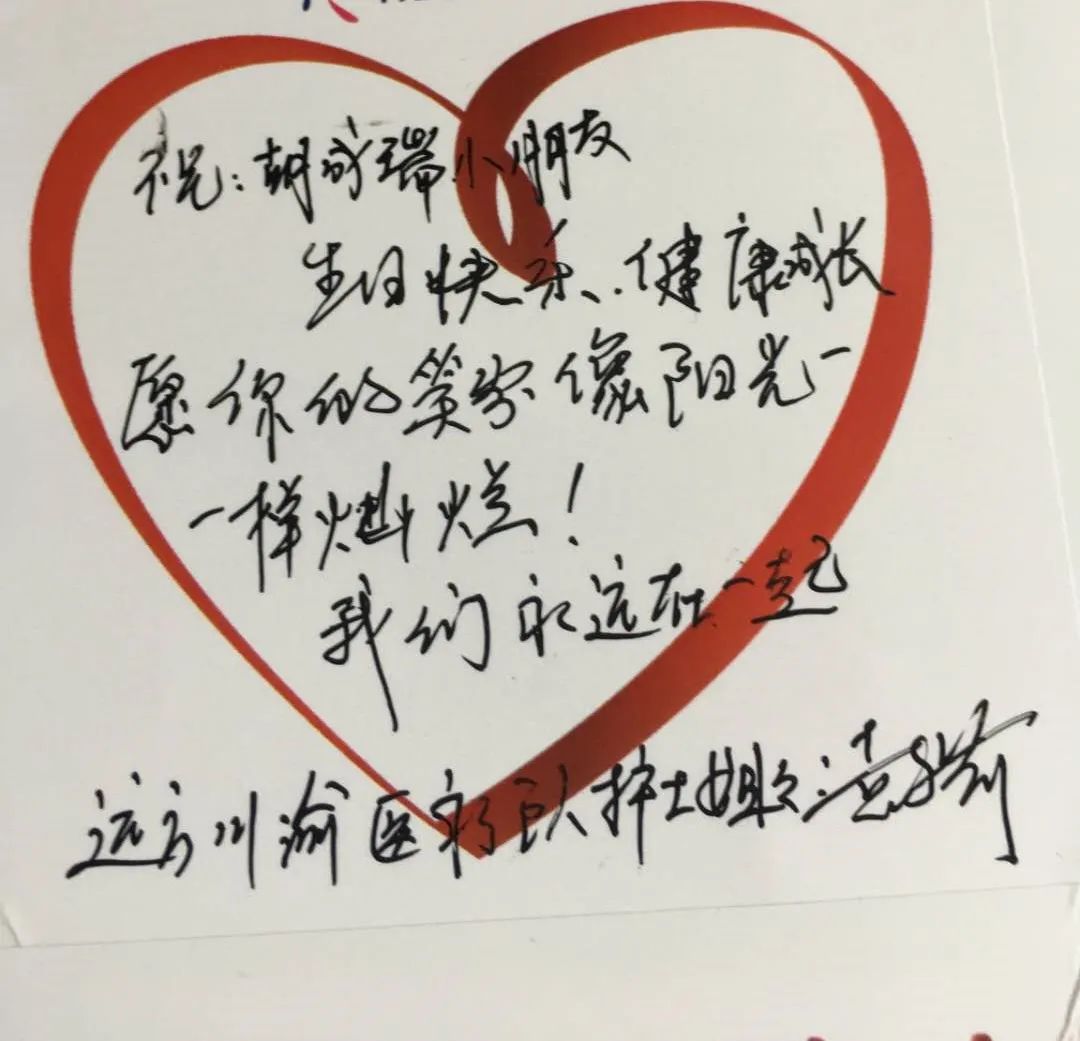 祝:朝成瑞小朋友
生日快乐、健康成长
愿你的笑容像阳光一
一样灿烂!
我们永远在一起
远方川渝医疗队护士姐姐: